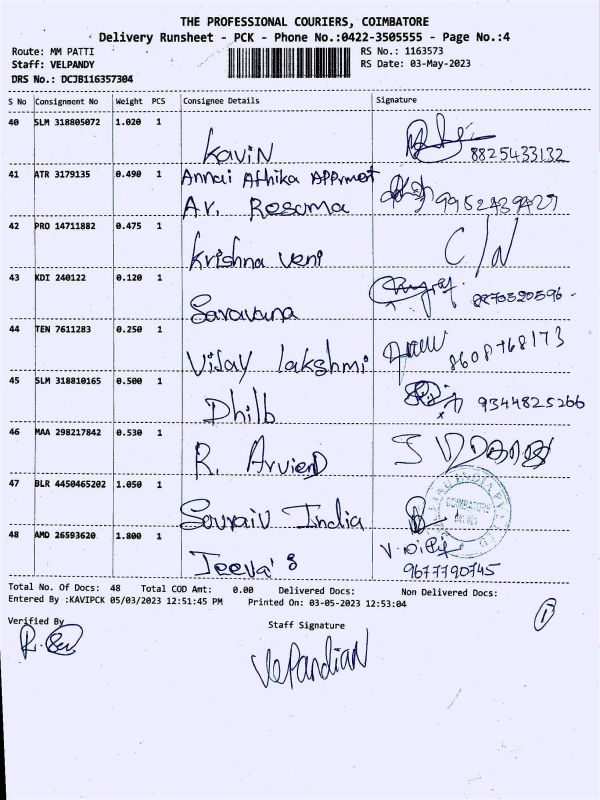 THE PROFESSIONAL COURIERS, COIMBATORE
Delivery Runsheet - PCK - Phone No.:0422-3505555 - Page No.:4
Route: MM PATTI RS No.: 1163573
Staff: VELPANDY RS Date: 03-May-2023
DRS No.: DCJB116357304
S No Consignment No Weight PCS Consignee Details Signature
40 SLM 318805072 1.020 1
Kavin 8825433132
41 ATR 3179135 0.490 1 Annai Athika APPrmet
Ar. Resoma 9952439427
42 PRO 14711882 0.475 1
Krishna veni C/N
43 KDI 240122 0.120 1
Saravana 8870520596
44 TEN 7611283 0.250 1
Vijay lakshmi 8608768173
45 SLM 318810165 0.500 1
Dhilb 9344825266
46 MAA 298217842 0.530 1
R. Arviend
47 BLR 4450465202 1.050 1
India COIMBATORE
48 AMD 26593620 1.800 1
Jeeva's 9677790745
Total No. Of Docs: 48 Total COD Amt: 0.00 Delivered Docs: Non Delivered Docs:
Entered By :KAVIPCK 05/03/2023 12:51:45 PM Printed On: 03-05-2023 12:53:04
1
Verified By
Staff Signature
VelPandian